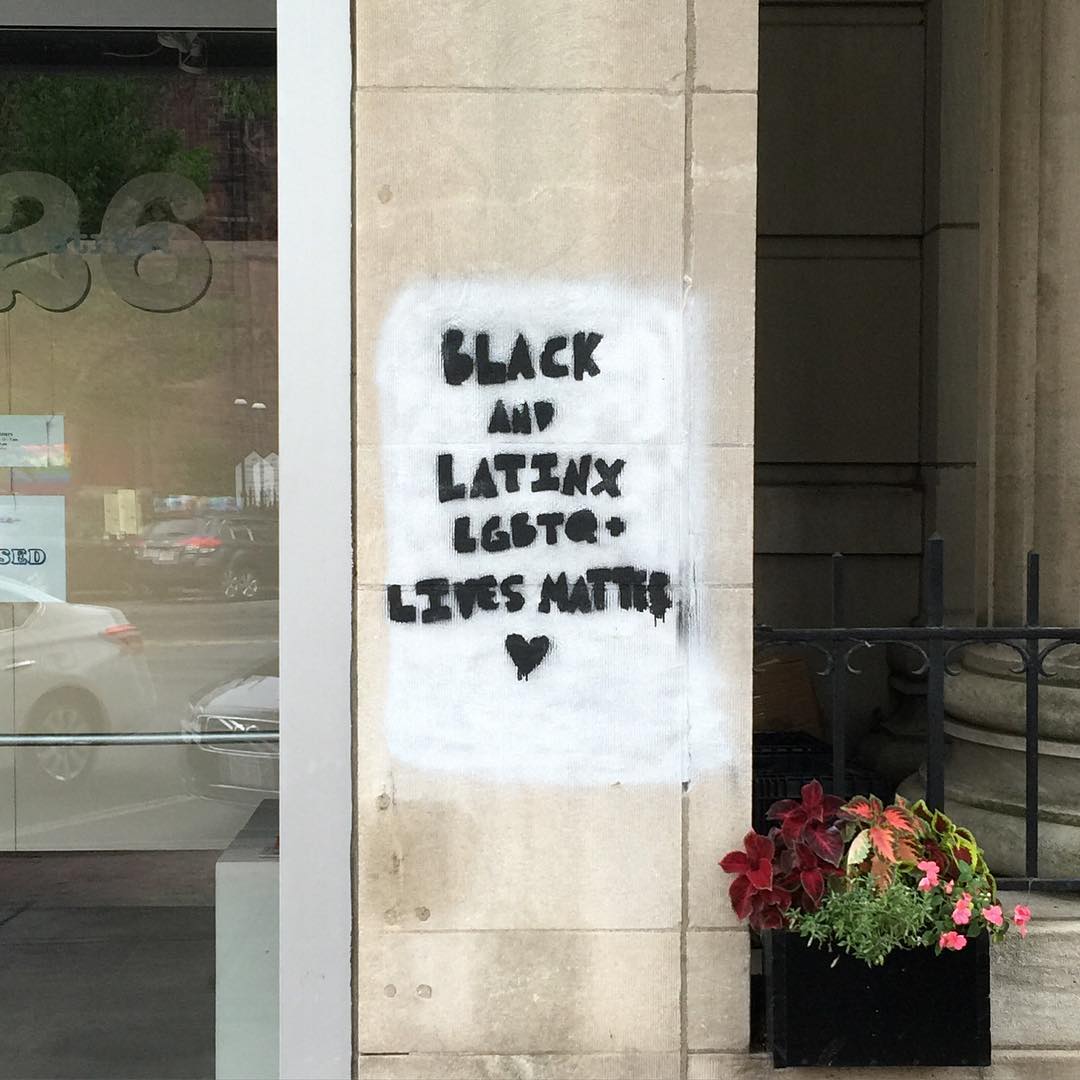 26
BLACK
AND
LATINX
LGBTQ+
LIVES MATTER
SED